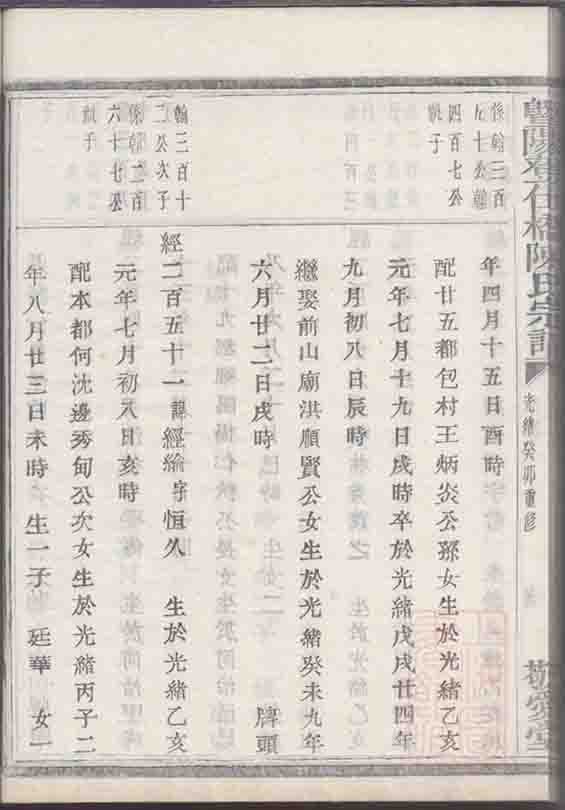 暨陽
橋陳氏宗譜
光緒癸卯重修
敬愛堂
係翰三百
九十公繼
四百七公
祧子
年四月十五日酉時
配廿五都包村王炳炎公孫女生於光緒乙亥
元年七月十九日戌時卒於光緒戊戌廿四年
九月初八日辰時
繼娶前山廟洪順賢公女生於光緒癸未九年
六月廿二日戌時
牌頭
翰三百十
二公次子
係翰二百
六十七公
祧子
經二百五十一諱經綸字恒久 生於光緒乙亥
元年七月初八日亥時
配本都何沈邊秀甸公次女生於光緒丙子二
年八月廿三日未時 生一子 廷華 女一